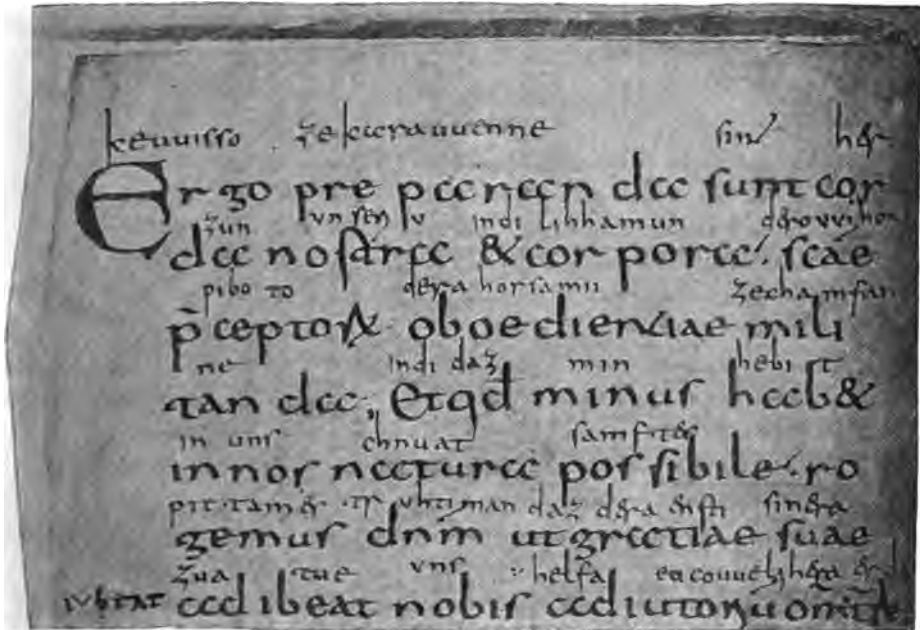 keuuisso zekarauuenne sin hęr
Ergo preparan da sunt cor
zun unseriu indi lihhamun derouuihon
da nostra & corpora. scāe
piboto dera horsamii zechamfan
p̄ceptorꝝ oboedientiae mili
ne indi daz min hebit
tan da; Etqđ minus hab&
in uns chnuat samftes
innos natura possibile. ro
pit·tam truhtinan daz dera ensti sinera
gemus dn̄m utgratiae suae
zua tue uns helfa
iubeat adibeat nobis adiutoriu